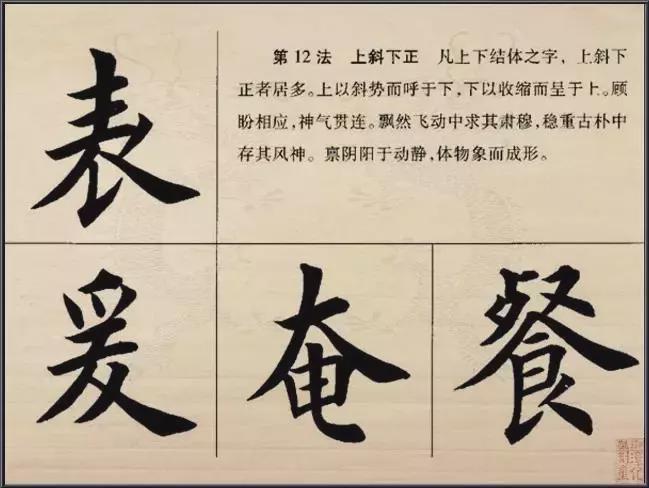 表
第12法 上斜下正 凡上下结体之字，上斜下
正者居多。上以斜势而呼于下，下以收缩而呈于上。顾
盼相应，神气贯连。飘然飞动中求其肃穆，稳重古朴中
存其风神。禀阴阳于动静，体物象而成形。
爰 奄 餐